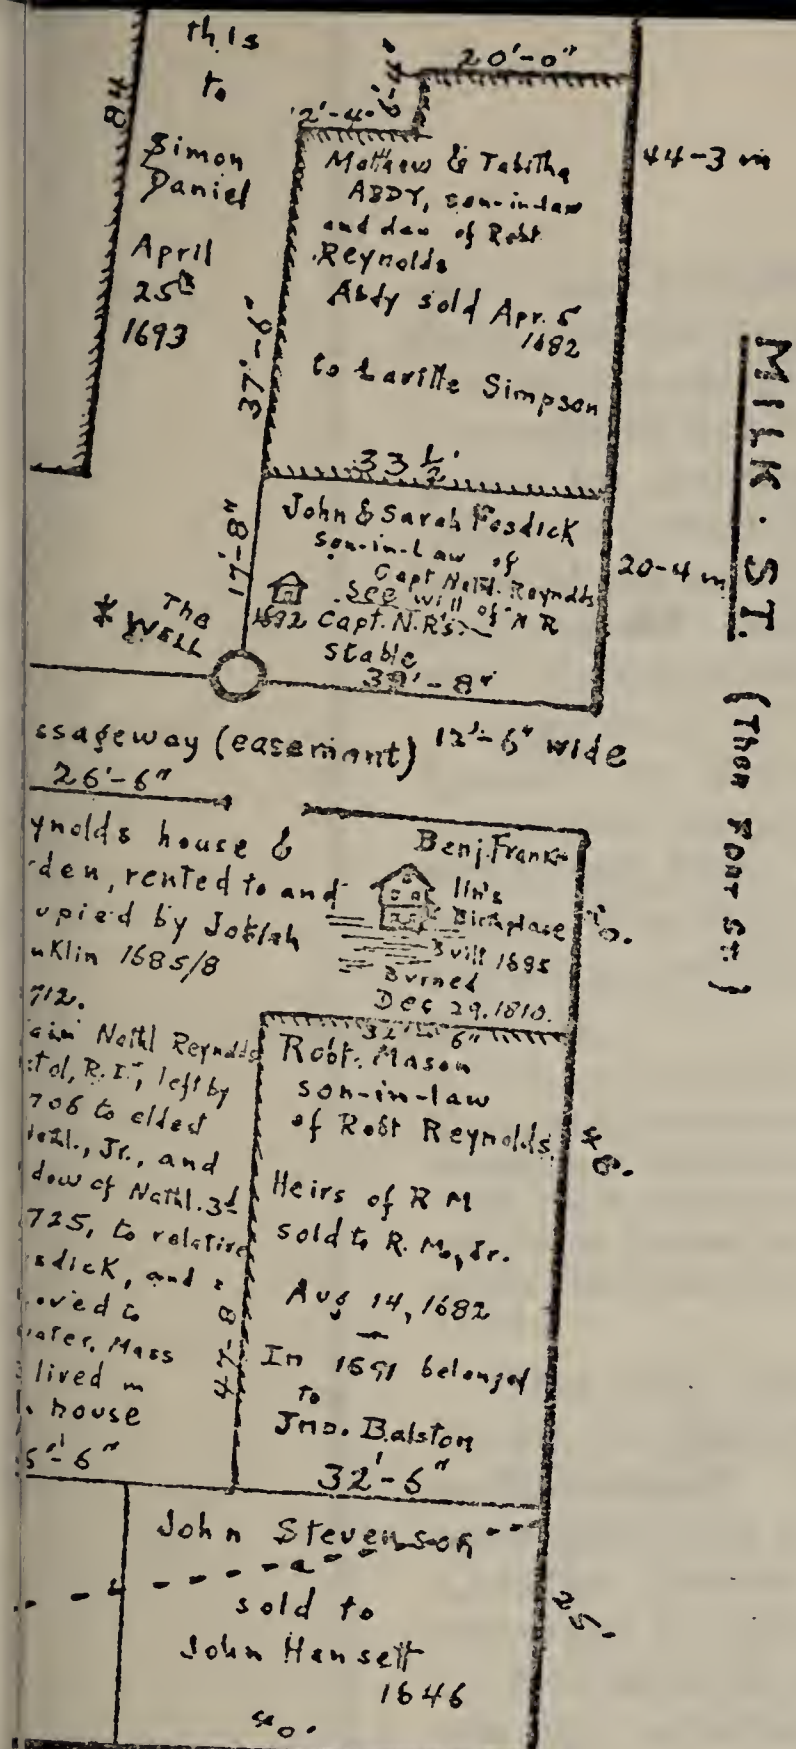 this
to
Simon
Daniel
April
25th
1693
84
20'-0"
6'-4"
2'-4-
Mathew & Tabitha
ABDY, son-in-law
and dau of Robt
Reynolds
Abdy sold Apr. 5
1682
to Saville Simpson
44-3 in
37'-6"
33 1/2'
17'-8"
John & Sarah Fosdick
son-in-Law of
Capt Nathl. Reynolds
See will of N R
1692 Capt. N.R's.
stable
39'-8"
20-4 in
The
* WELL
MILK. ST. (Then FORT ST.)
ssageway (easemant) 12'-6" wide
26'-6"
ynolds house &
rden, rented to and
upied by Josiah
nklin 1685/8
712.
ain Nathl Reynolds
stol, R.I., left by
706 to eldest
Nathl., Jr., and
dow of Nathl. 3d
725, to relative
sdick, and
oved to
water, Mass
lived in
house
5'-6"
Benj. Frank-
lin's
Birthplace
Built 1685
Burned
Dec 29. 1810.
32'-6"
Robt. Mason
son-in-law
of Robt Reynolds
46.
Heirs of R M
sold to R. M., Jr.
Aug 14, 1682
In 1691 belonged
to
Jno. Balston
47-8
32'-6"
John Stevenson
sold to
John Hansett
1646
25.
40.